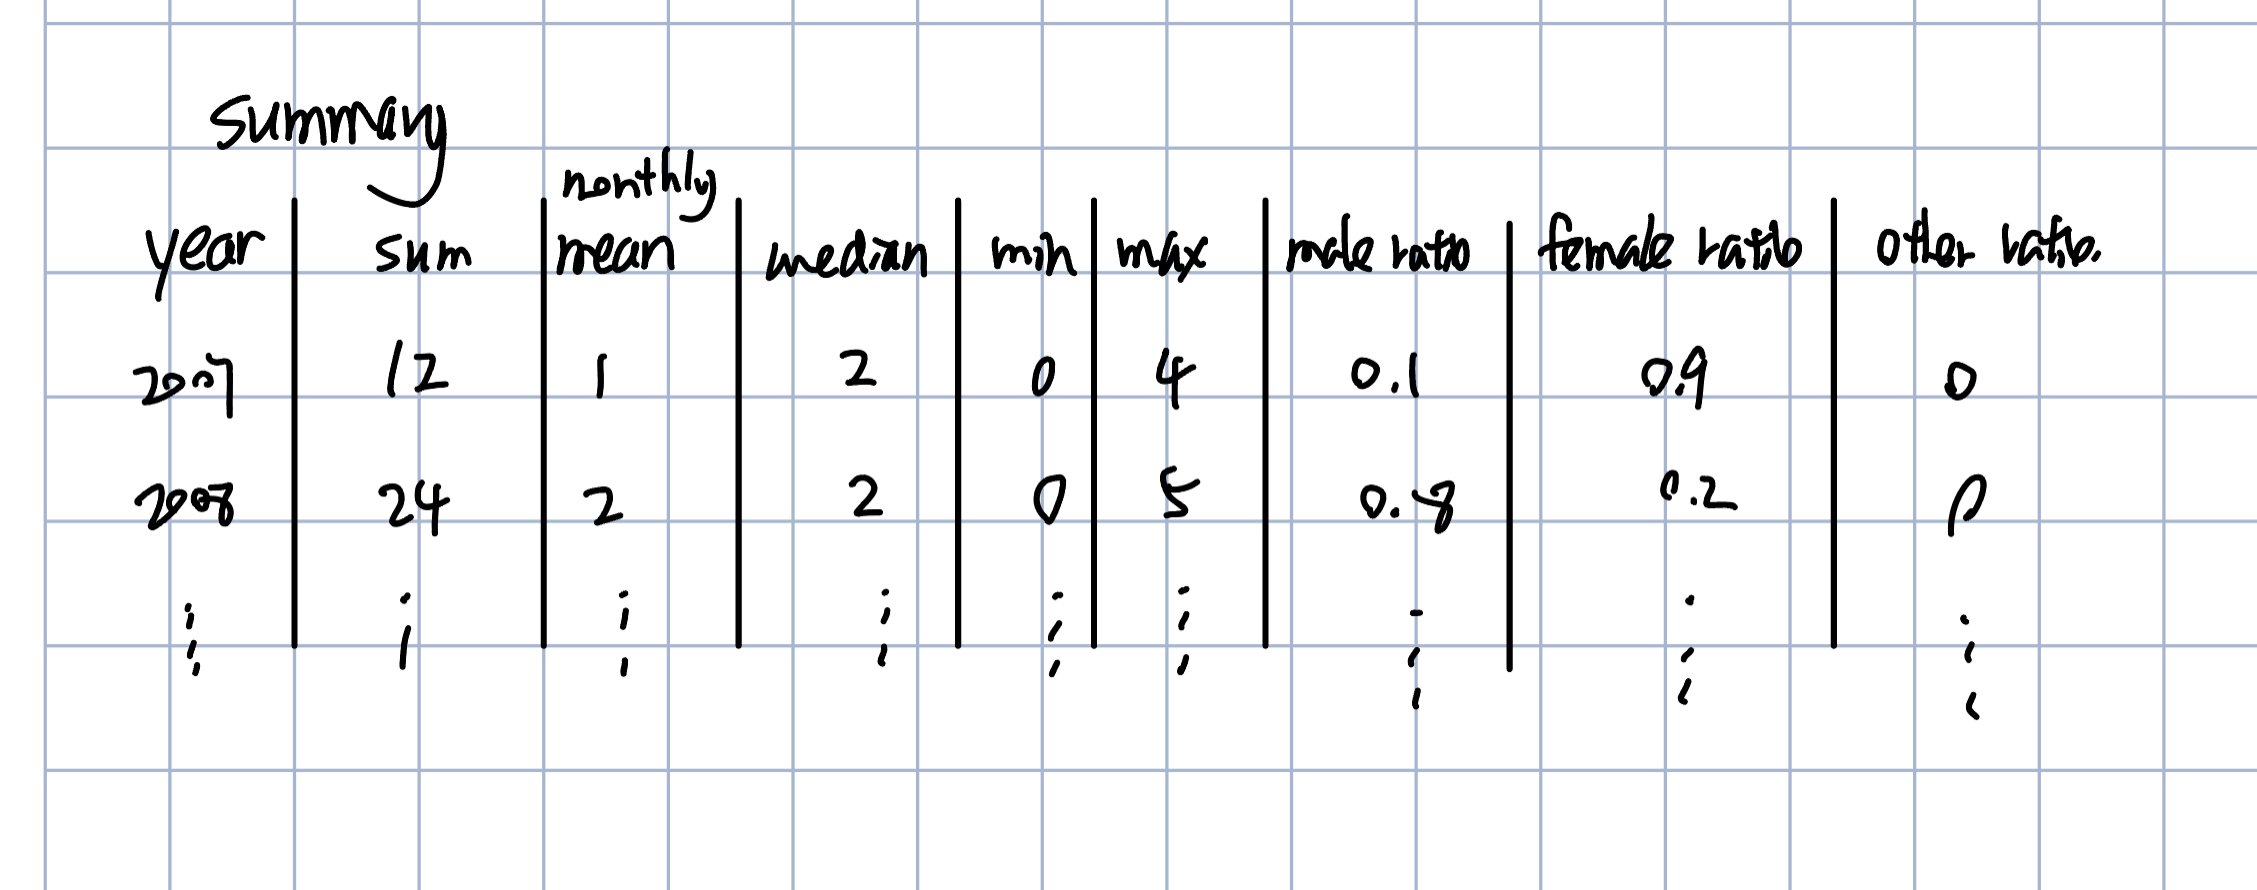 summary
monthly
year sum mean median min max male ratio female ratio other ratio.
2007 12 1 2 0 4 0.1 0.9 0
2008 24 2 2 0 5 0.8 0.2 0